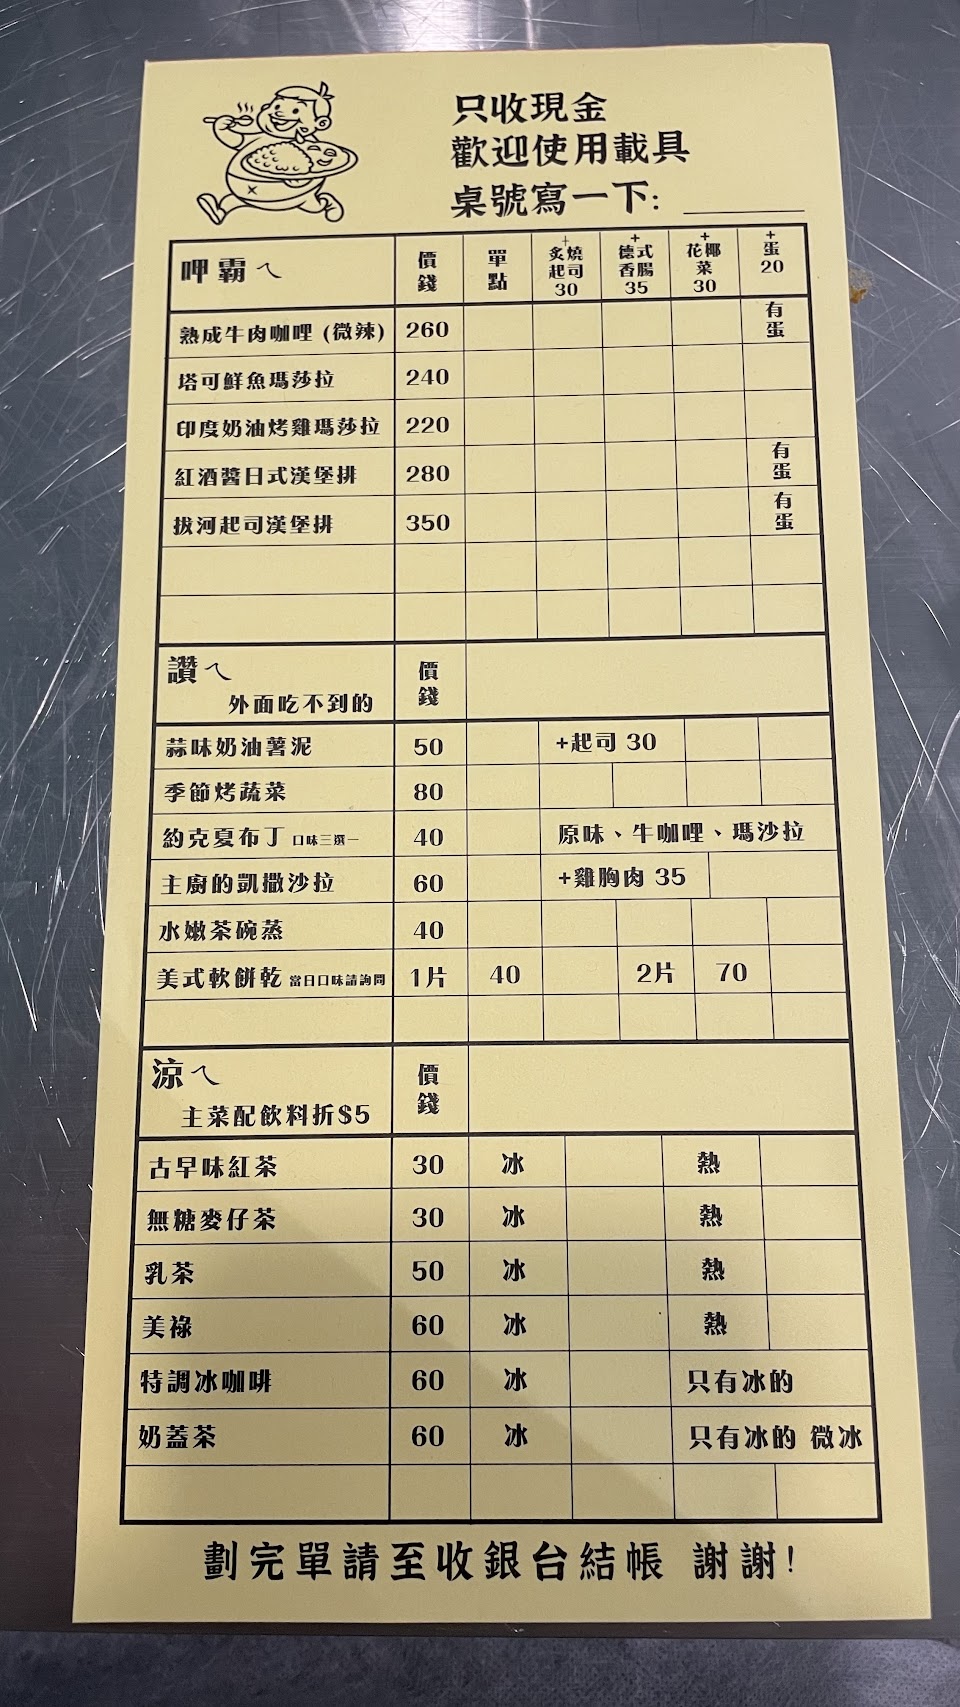 只收現金
歡迎使用載具
桌號寫一下:
呷霸ㄟ 價錢 單點 +炙燒起司30 +德式香腸35 +花椰菜30 +蛋20
熟成牛肉咖哩 (微辣) 260 有蛋
塔可鮮魚瑪莎拉 240
印度奶油烤雞瑪莎拉 220
紅酒醬日式漢堡排 280 有蛋
拔河起司漢堡排 350 有蛋
讚ㄟ 價錢
外面吃不到的
蒜味奶油薯泥 50 +起司 30
季節烤蔬菜 80
約克夏布丁 口味三選一 40 原味、牛咖哩、瑪沙拉
主廚的凱撒沙拉 60 +雞胸肉 35
水嫩茶碗蒸 40
美式軟餅乾 當日口味請詢問 1片 40 2片 70
涼ㄟ 價錢
主菜配飲料折$5
古早味紅茶 30 冰 熱
無糖麥仔茶 30 冰 熱
乳茶 50 冰 熱
美祿 60 冰 熱
特調冰咖啡 60 冰 只有冰的
奶蓋茶 60 冰 只有冰的 微冰
劃完單請至收銀台結帳 謝謝!